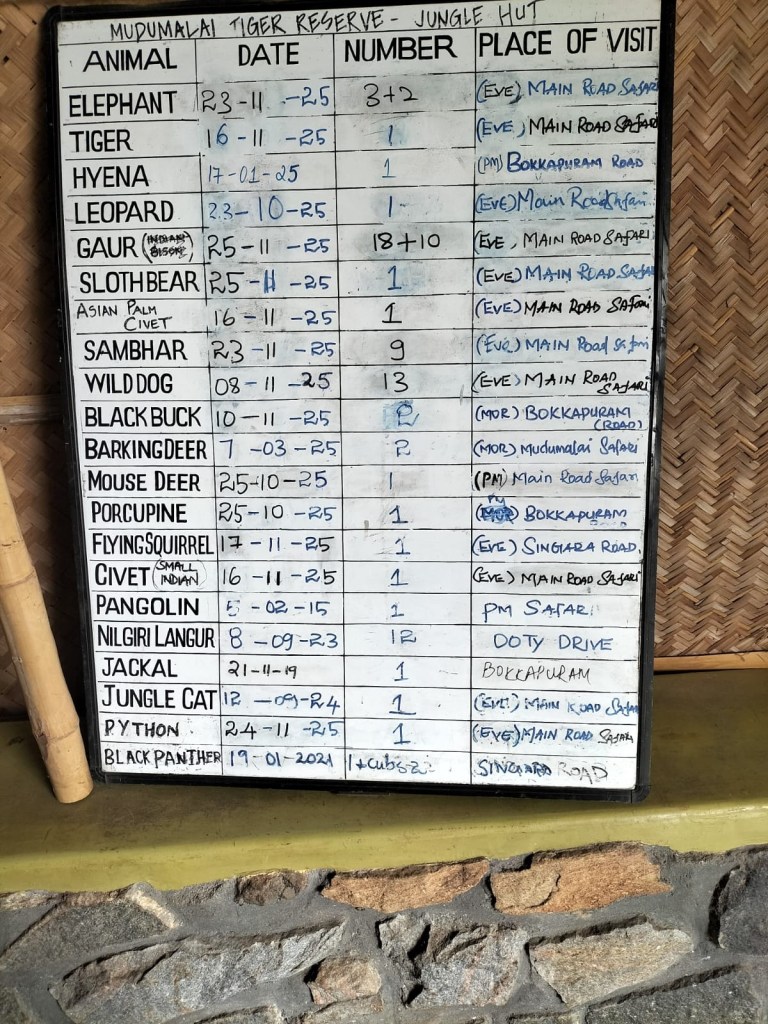 MUDUMALAI TIGER RESERVE - JUNGLE HUT
ANIMAL DATE NUMBER PLACE OF VISIT
ELEPHANT 23-11-25 3+2 (EVE) MAIN ROAD Safari
TIGER 16-11-25 1 (EVE) MAIN ROAD SAFari
HYENA 17-01-25 1 (PM) BOKKAPURAM ROAD
LEOPARD 23-10-25 1 (EVE) Main Road Safari
GAUR (INDIAN BISON) 25-11-25 18+10 (EVE, MAIN ROAD SAFARI
SLOTH BEAR 25-11-25 1 (EVE) MAIN ROAD SAFAR
ASIAN PALM CIVET 16-11-25 1 (EVE) MAIN ROAD SAFari
SAMBHAR 23-11-25 9 (Eve) MAIN Road Safari
WILD DOG 08-11-25 13 (EVE) MAIN ROAD SAFARI
BLACK BUCK 10-11-25 2 (MOR) BOKKAPURAM (ROAD)
BARKING DEER 7-03-25 2 (MOR) Mudumalai Safari
MOUSE DEER 25-10-25 1 (PM) Main Road Safari
PORCUPINE 25-10-25 1 PM BOKKAPURAM
FLYING SQUIRREL 17-11-25 1 (EVE) SINGARA ROAD.
CIVET (SMALL INDIAN) 16-11-25 1 (EVE) MAIN ROAD SAFARI
PANGOLIN 5-02-15 1 PM SAFARI
NILGIRI LANGUR 8-09-23 12 OOTY DRIVE
JACKAL 21-11-19 1 BOKKAPURAM
JUNGLE CAT 12-09-24 1 (EVE) MAIN ROAD Safari
PYTHON 24-11-25 1 (EVE) MAIN ROAD SAFARI
BLACK PANTHER 19-01-2021 1+cubs-2 SINGARA ROAD